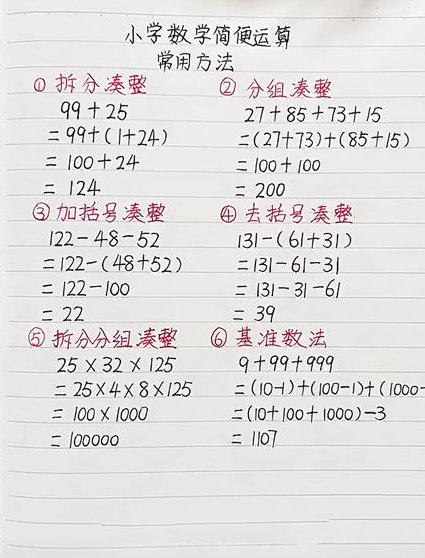 小学数学简便运算
常用方法
① 拆分凑整
99+25
=99+(1+24)
=100+24
=124
② 分组凑整
27+85+73+15
=(27+73)+(85+15)
=100+100
=200
③ 加括号凑整
122-48-52
=122-(48+52)
=122-100
=22
④ 去括号凑整
131-(61+31)
=131-61-31
=131-31-61
=39
⑤ 拆分分组凑整
25×32×125
=25×4×8×125
=100×1000
=100000
⑥ 基准数法
9+99+999
=(10-1)+(100-1)+(1000-
=(10+100+1000)-3
=1107